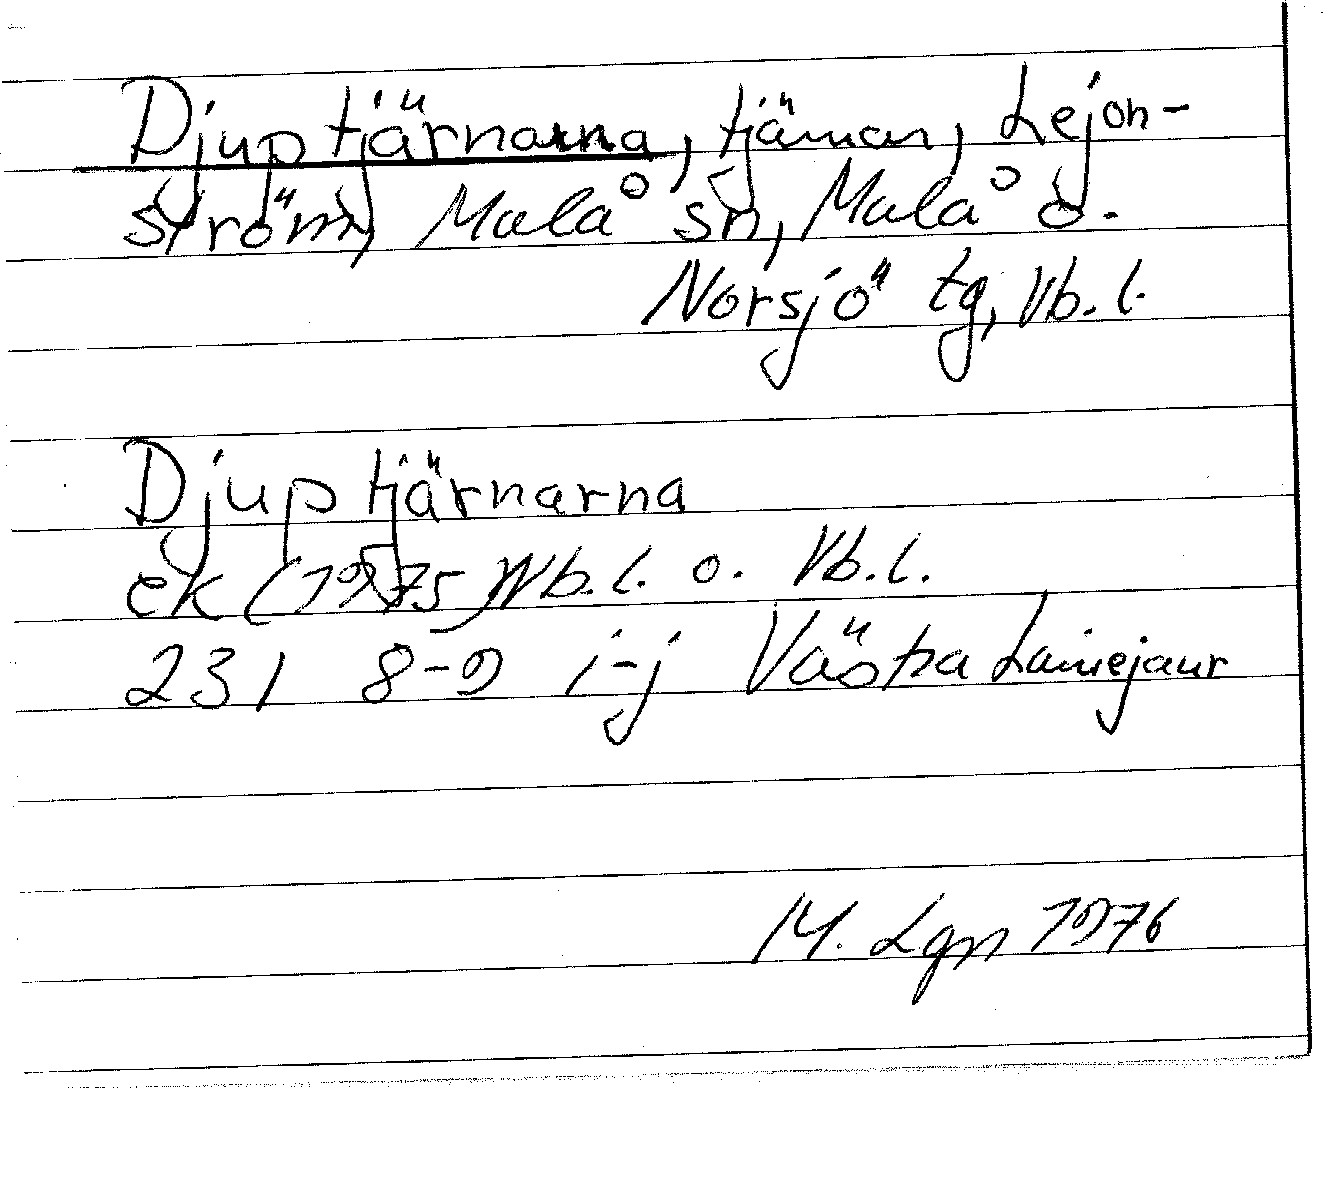 Djuptjärnarna, tjärnar, Lejon-
ström, Malå sn, Malå o.
Norsjö tg, Vb. l.
Djuptjärnarna
ek (1975) Nb. l. o. Vb. l.
231 8-9 i-j Västra Lainejaur
M. Lgn 1976